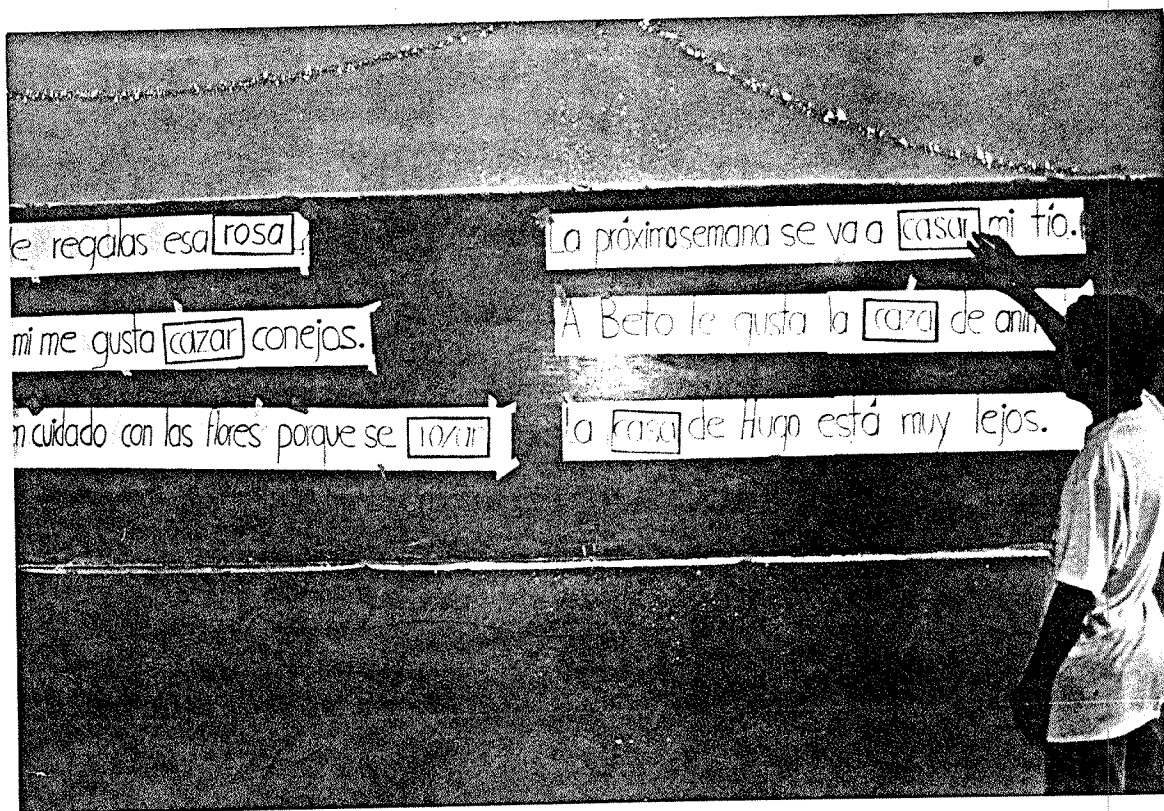 e regalas esa rosa
mi me gusta cazar conejos.
n cuidado con las flores porque se rozan
La próxima semana se va a casar mi tío.
A Beto le gusta la caza de anim
la casa de Hugo está muy lejos.